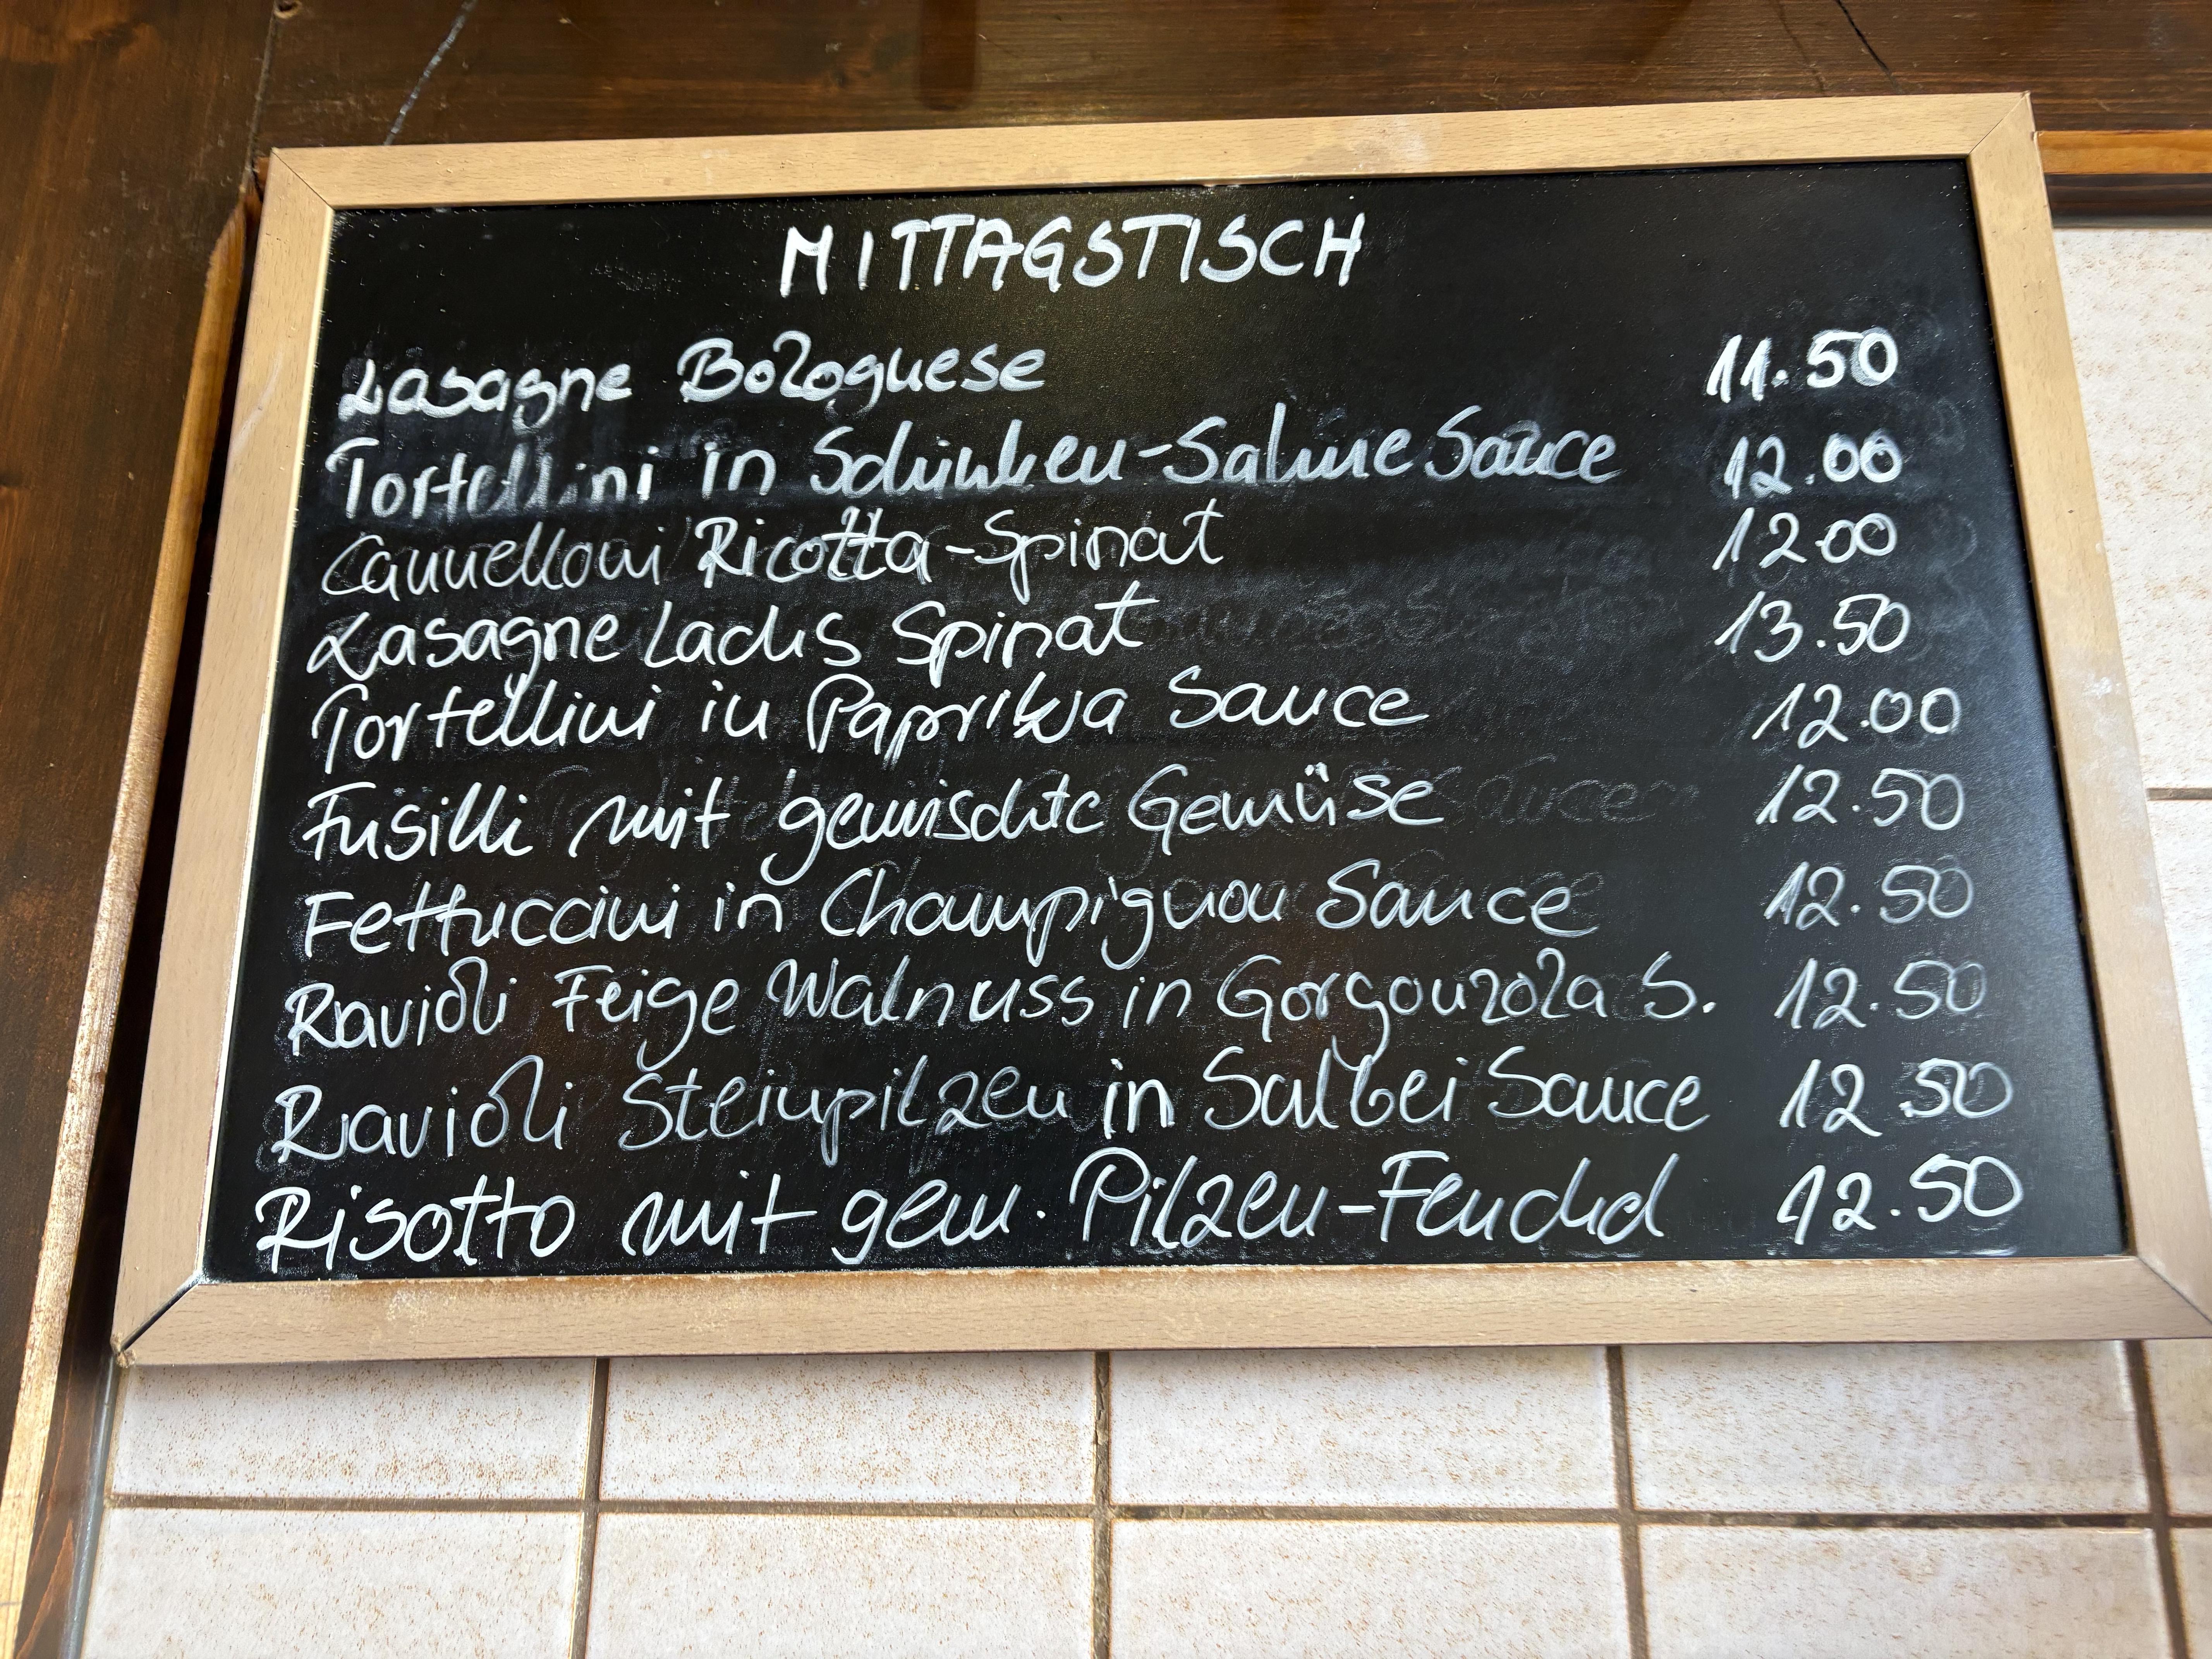 MITTAGSTISCH
Lasagne Bolognese 11.50
Tortellini in Schinken-Sahne Sauce 12.00
Cannelloni Ricotta-Spinat 12.00
Lasagne Lachs Spinat 13.50
Tortellini in Paprika Sauce 12.00
Fusilli mit gemischte Gemüse 12.50
Fettuccini in Champignon Sauce 12.50
Ravioli Feige Walnuss in Gorgonzola S. 12.50
Ravioli Steinpilzen in Salbei Sauce 12.50
Risotto mit gem. Pilzen-Fenchel 12.50